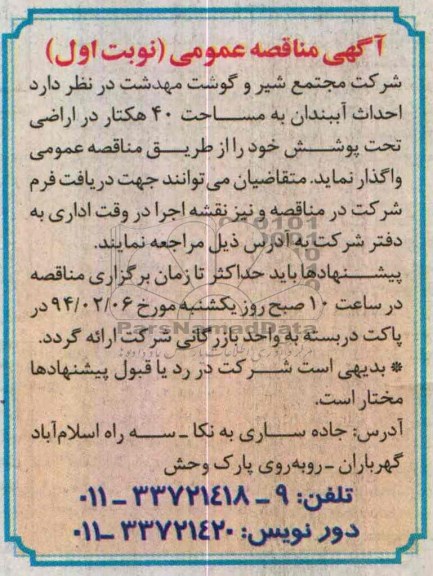 آگهی مناقصه عمومی (نوبت اول)
شرکت مجتمع شیر و گوشت مهدشت در نظر دارد
احداث آببندان به مساحت ۴۰ هکتار در اراضی
تحت پوشش خود را از طریق مناقصه عمومی
واگذار نماید. متقاضیان می‌توانند جهت دریافت فرم
شرکت در مناقصه و نیز نقشه اجرا در وقت اداری به
دفتر شرکت به آدرس ذیل مراجعه نمایند.
پیشنهادها باید حداکثر تا زمان برگزاری مناقصه
در ساعت ۱۰ صبح روز یکشنبه مورخ ۹۴/۰۲/۰۶ در
پاکت دربسته به واحد بازرگانی شرکت ارائه گردد.
* بدیهی است شرکت در رد یا قبول پیشنهادها
مختار است.
آدرس: جاده ساری به نکا ـ سه راه اسلام‌آباد
گهرباران ـ روبه‌روی پارک وحش
تلفن: ۹ ـ ۳۳۷۲۱۴۱۸ ـ ۰۱۱
دور نویس: ۳۳۷۲۱۴۲۰ ـ۰۱۱
ParsNamadData